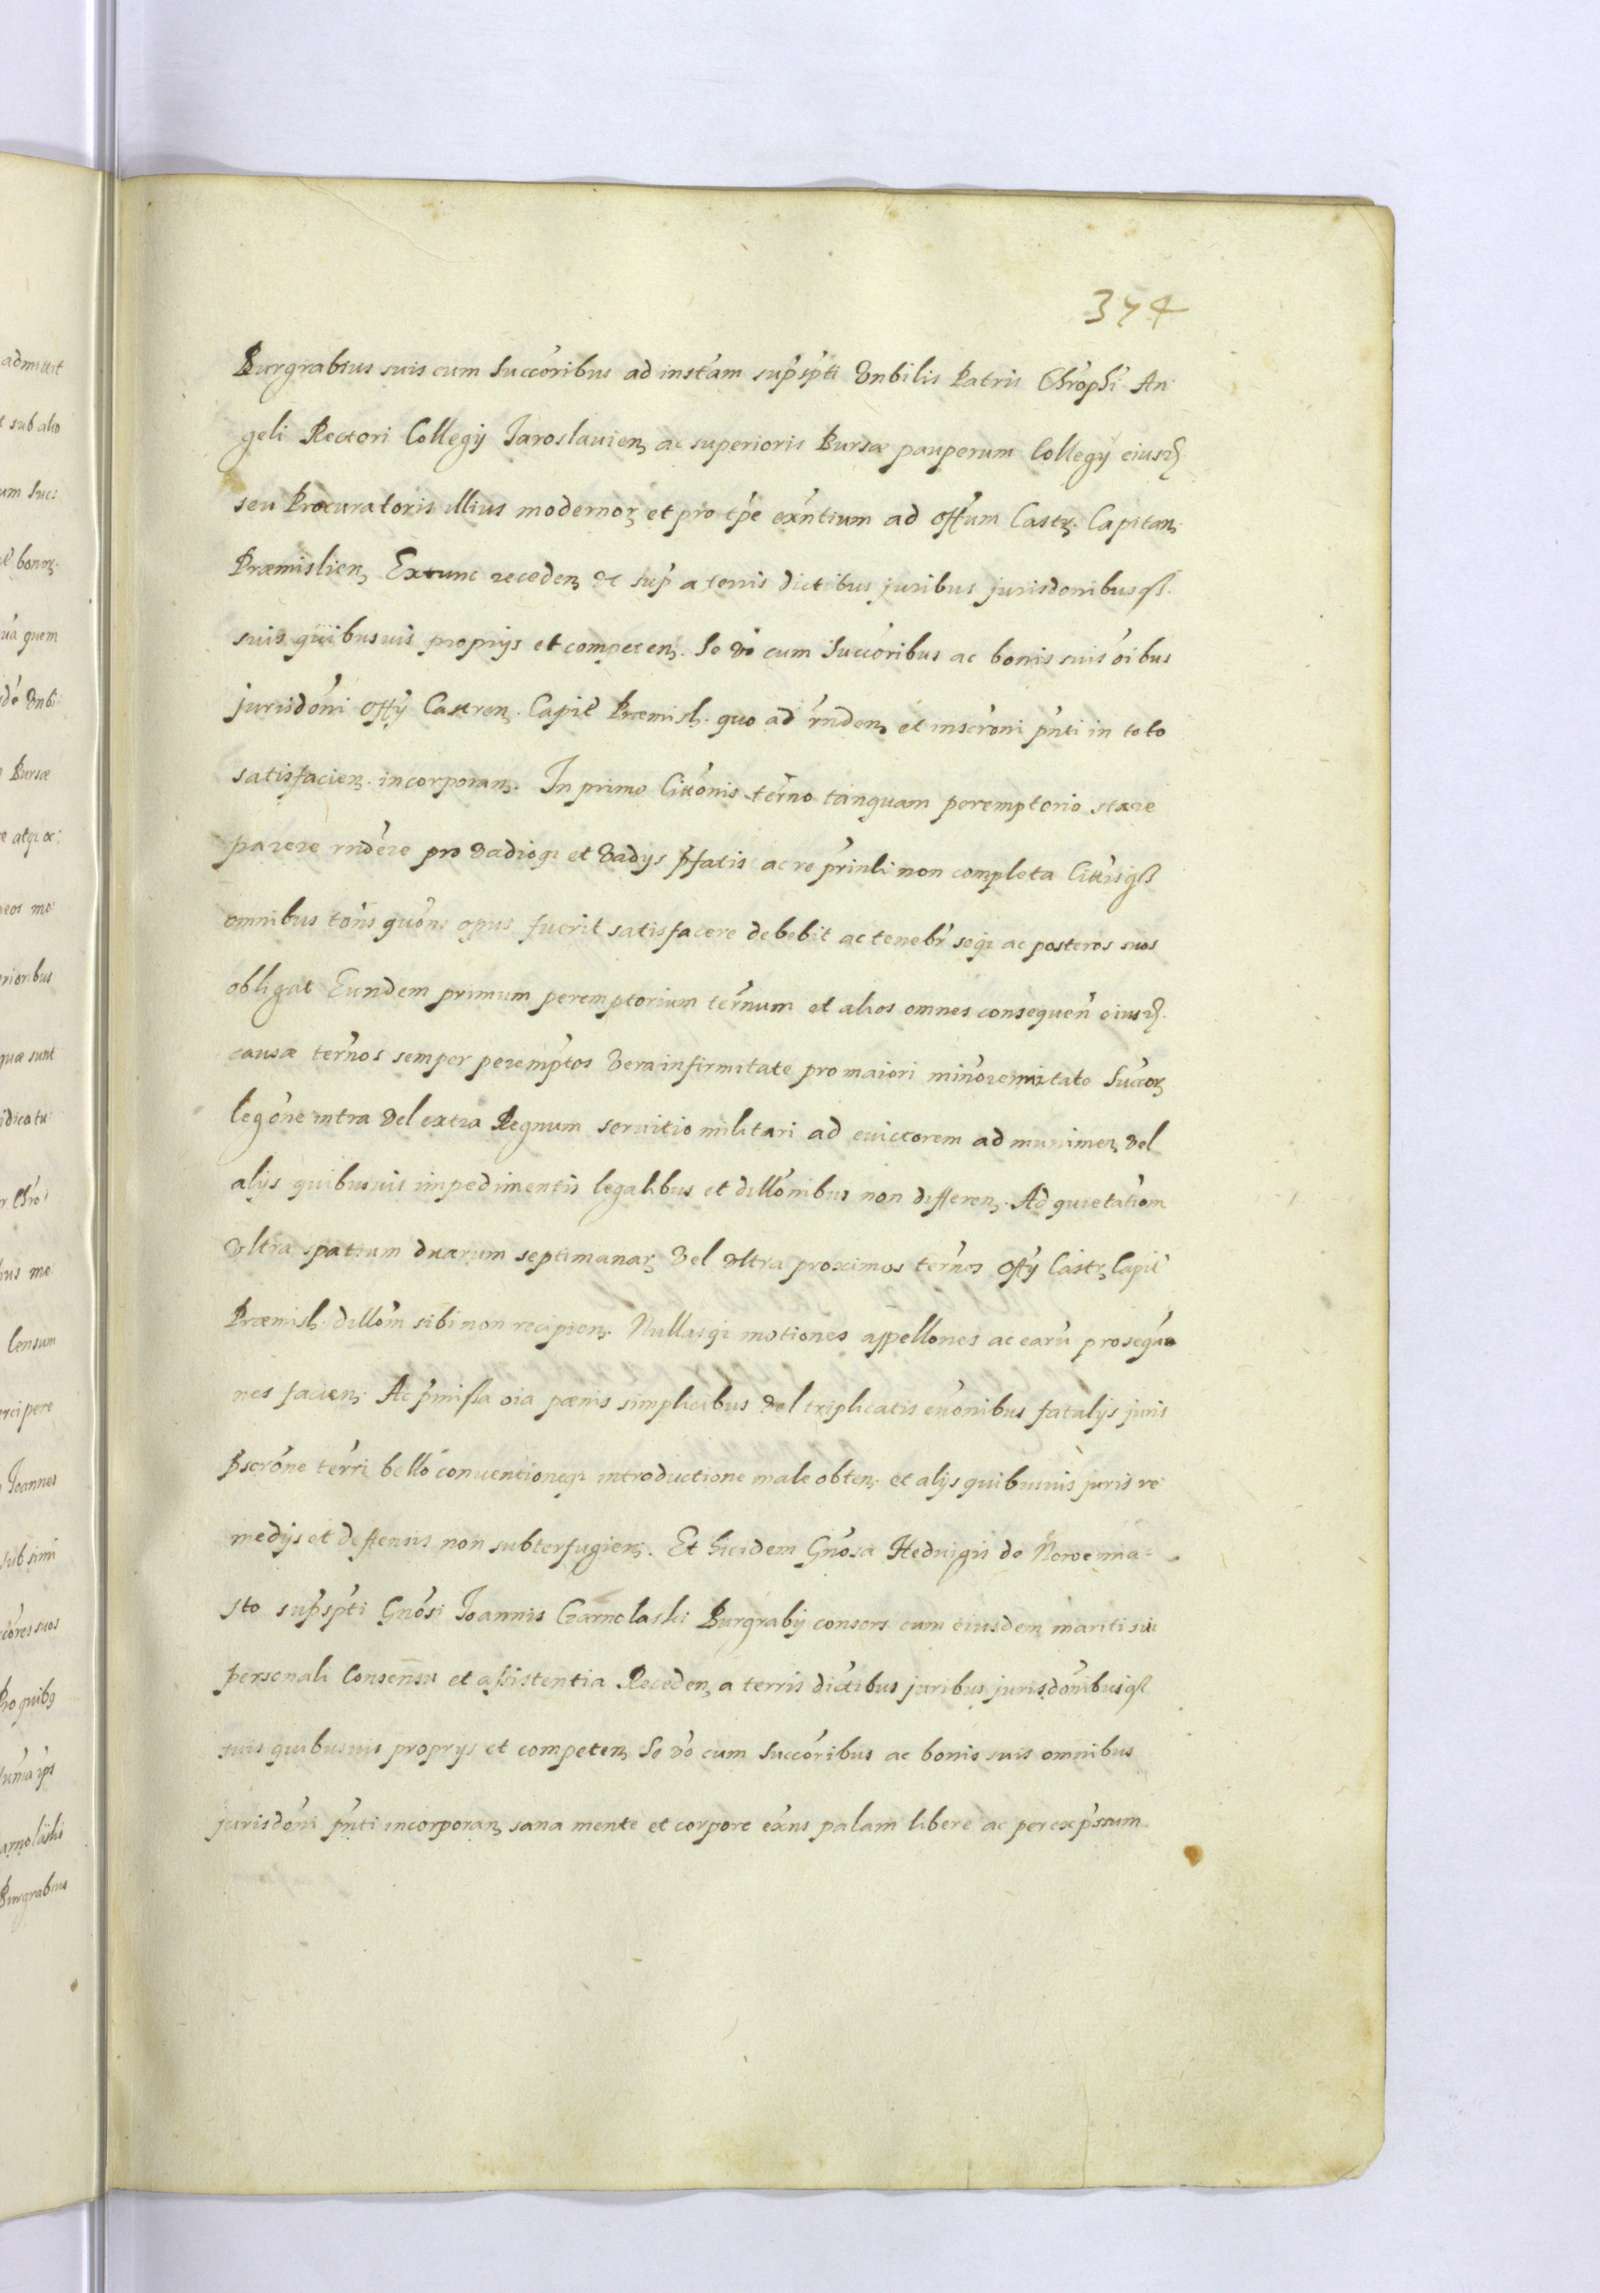 374
Burgrabius suis cum Succōribus ad instām supspti Vnbilis Patris Chrophi An
geli Rectori Collegij Jaroslauien, ac superioris Bursæ pauperum Collegij eiusd
seu Procuratoris illius modernor, et pro tpe exntium ad Offum Castr, Capitan,
Præmislien, Extunc receden, &c sup a terris dictibus juribus jurisdonibusqß.
suis quibusuis proprijs et competen,. Se vo cum Succoribus ac bonis suis oibus
jurisdoni Offij Castren,. Capil Præmisl,. quo ad rnden, et inscroni pnti in toto
satisfacien,. incorporan,. In primo Cittonis termo tanquam peremptorio stare
parere rndere pro Vadioqz et Vadijs pfatis ac re prinli non completa Cittisqß
omnibus tons quons opus fuerit satisfacere debebit ac tenebr seqz ac posteros suos
obligat Eundem primum peremptorium termum et alios omnes consequen eiusd.
causæ termos semper peremptos Vera infirmitate pro maiori minorennitate Succor,
legone intra Vel extra Regnum seruitio militari ad euictorem ad munimen, Vel
alijs quibusuis impedimentis legalibus et dillonibus non differen,. Ad quietatiom
Vltra spatium duarum septimanar, Vel Vltra proximos termos Offij Castr, Capil
Præmisl,. dillom sibi non recipien,. Nullasqz motiones appellones ac earu prosequo
nes facien,. Ac pmissa oia pænis simplicibus Vel triplicatis euonibus fatalijs juris
pscrone terri bello conuentioneqz introductione male obten,. et alijs quibusuis juris re
medijs et deffensis non subterfugien,. Et ibidem Gnosa Heduigis de Nowemia=
sto supspti Gnosi Joannis Czarnolaski Burgrabij consors cum eiusdem mariti sui
personali Consensu et assistentia Receden, a terris dictibus juribus jurisdonibusqß
suis quibusuis proprijs et competen, Se vo cum Succoribus ac bonis suis omnibus
jurisdoni pnti incorporan, sana mente et corpore exns palam libere ac per expssum